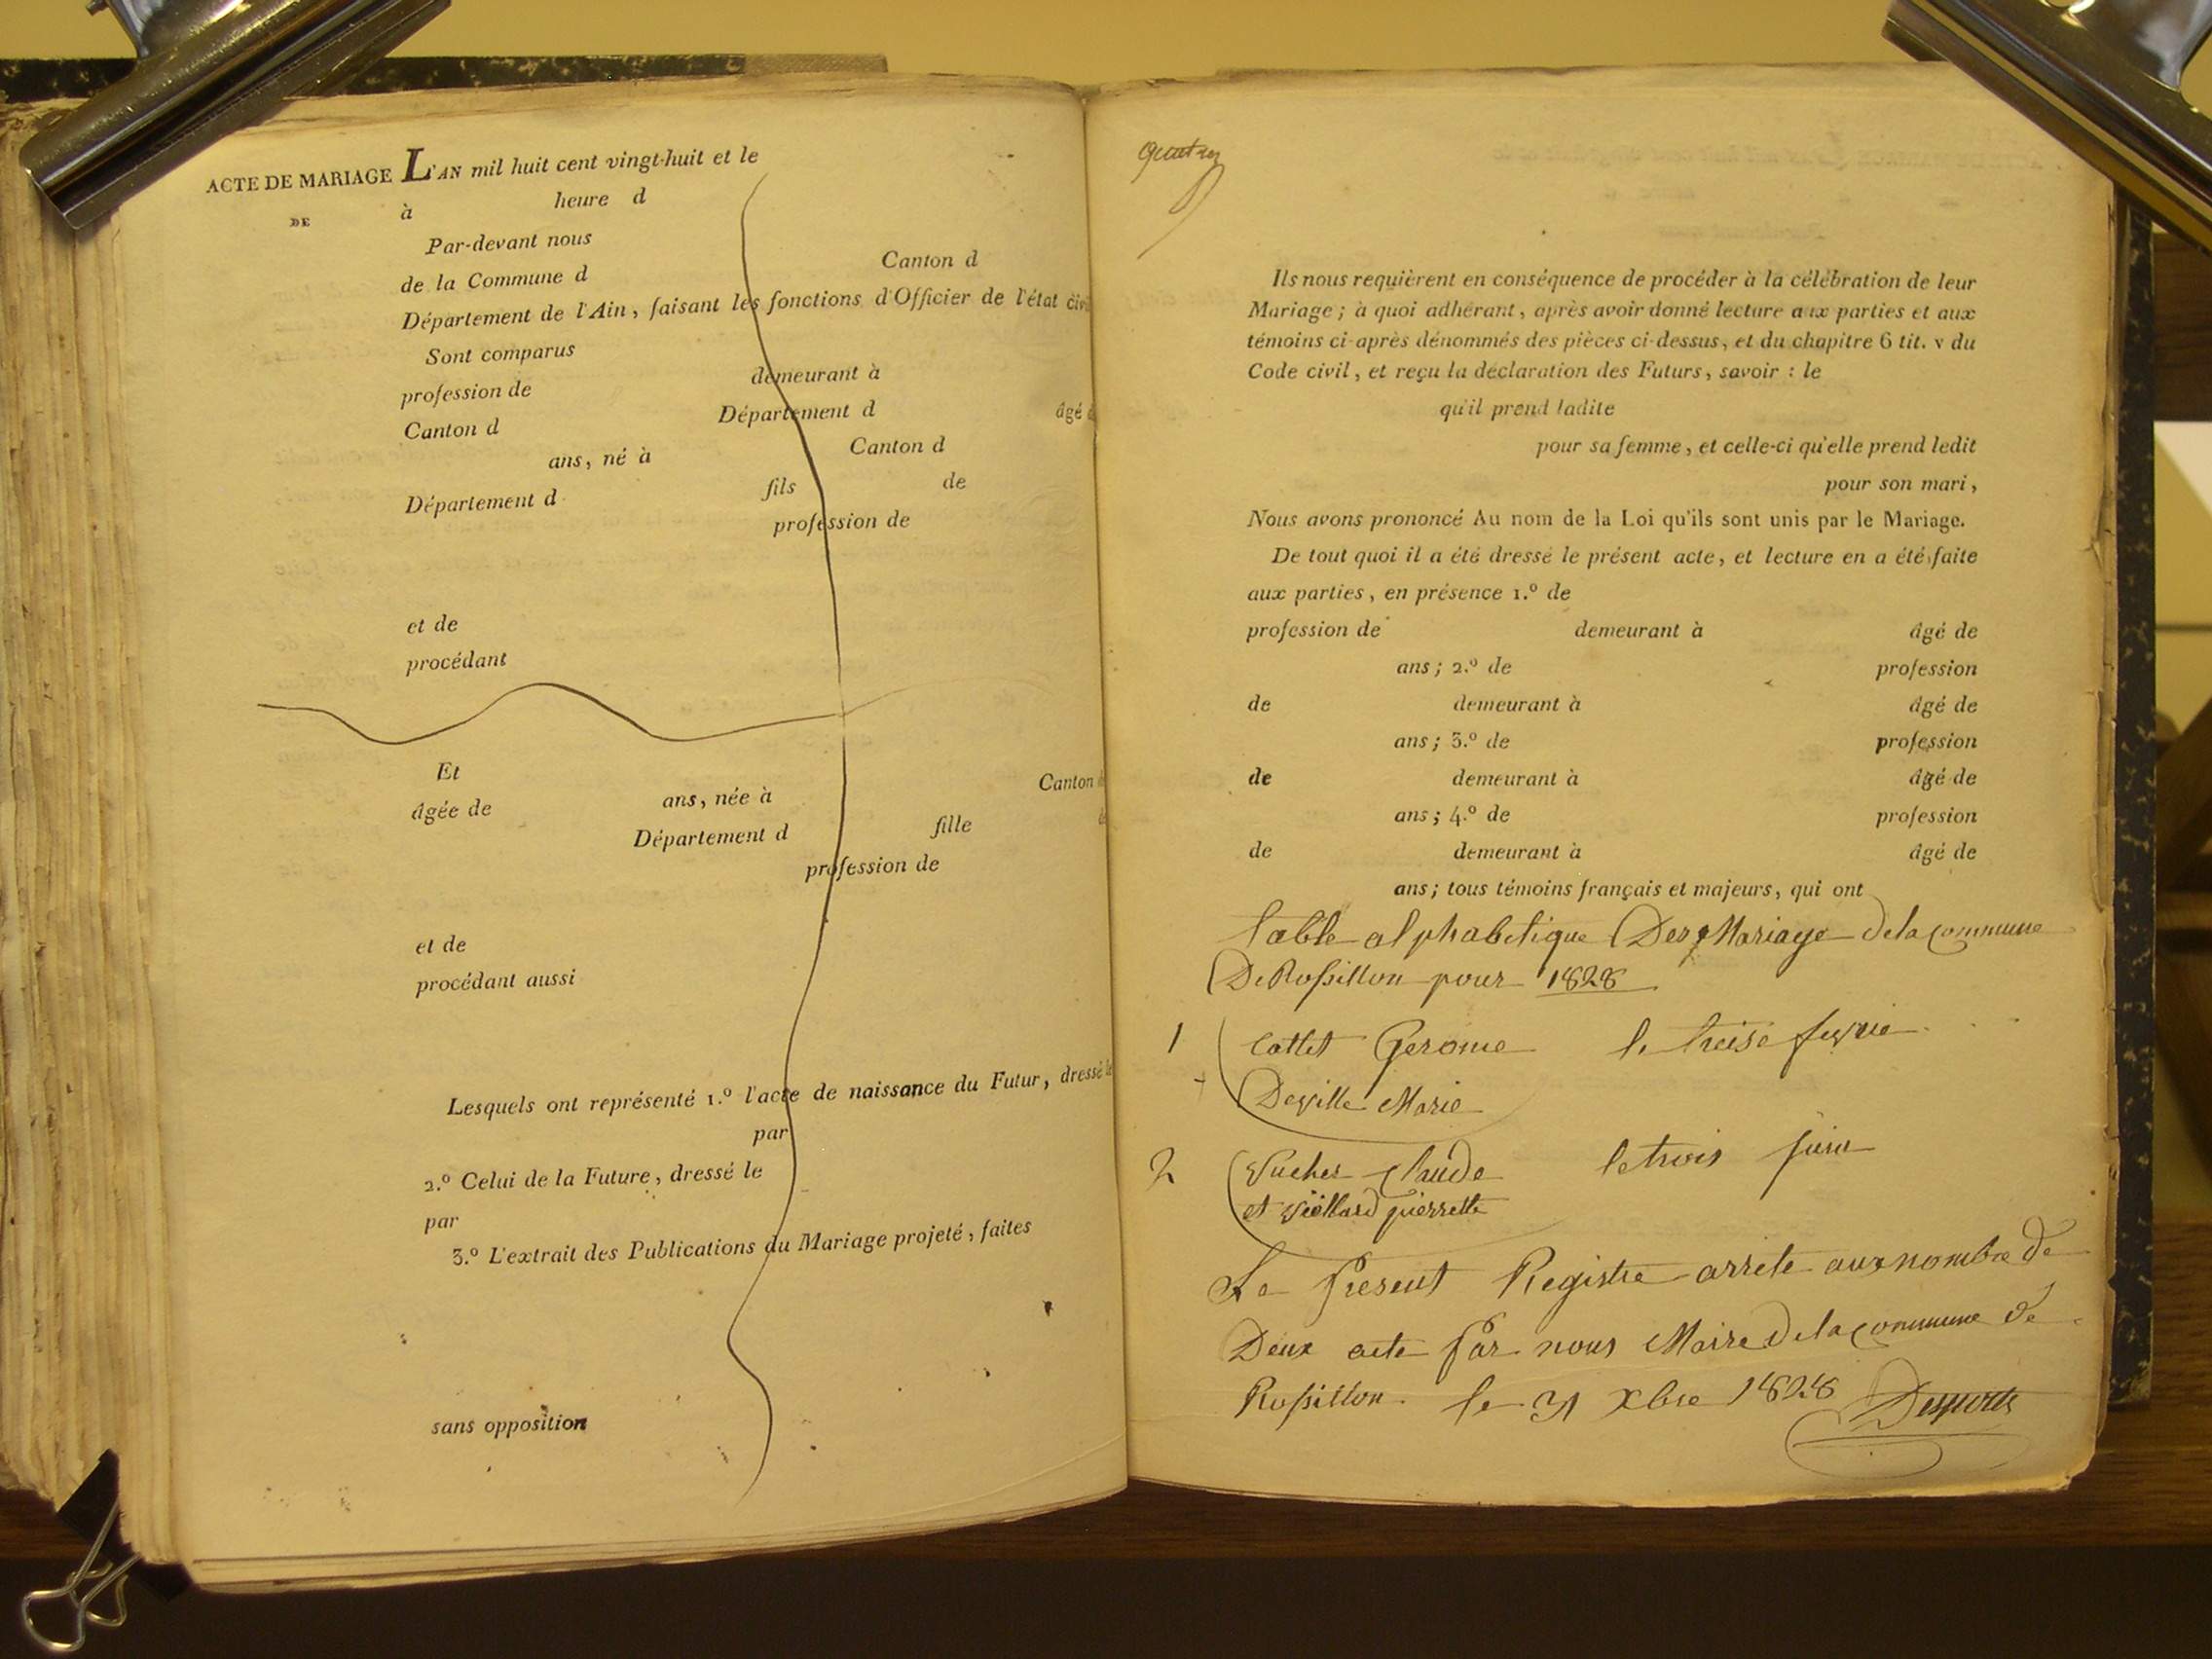 ACTE DE MARIAGE L'AN mil huit cent vingt-huit et le
DE à heure d
Par-devant nous
de la Commune d Canton d
Département de l'Ain, faisant les fonctions d'Officier de l'état civi
Sont comparus
profession de demeurant à
Canton d Département d âgé d
ans, né à Canton d
Département d fils de
profession de
et de
procédant
Et
âgée de ans, née à Canton d
Département d fille de
profession de
et de
procédant aussi
Lesquels ont représenté 1.º l'acte de naissance du Futur, dressé le
par
2.º Celui de la Future, dressé le
par
3.º L'extrait des Publications du Mariage projeté, faites
sans opposition
Ils nous requièrent en conséquence de procéder à la célébration de leur
Mariage; à quoi adhérant, après avoir donné lecture aux parties et aux
témoins ci-après dénommés des pièces ci-dessus, et du chapitre 6 tit. v du
Code civil, et reçu la déclaration des Futurs, savoir : le
qu'il prend ladite
pour sa femme, et celle-ci qu'elle prend ledit
pour son mari,
Nous avons prononcé Au nom de la Loi qu'ils sont unis par le Mariage.
De tout quoi il a été dressé le présent acte, et lecture en a été faite
aux parties, en présence 1.º de
profession de demeurant à âgé de
ans; 2.º de profession
de demeurant à âgé de
ans; 3.º de profession
de demeurant à âgé de
ans; 4.º de profession
de demeurant à âgé de
ans; tous témoins français et majeurs, qui ont
table alphabetique Des Mariage de la commune
De Rossillon pour 1828
1 Cattet Gerome le treise
Deville Marie
2 Vucher Claude le trois juin
et pierrette
Le Present Registre arrete aux nombre de
Deux acte par nous Maire de la commune de
Rossillon le 31 Xbre 1828 Desportes